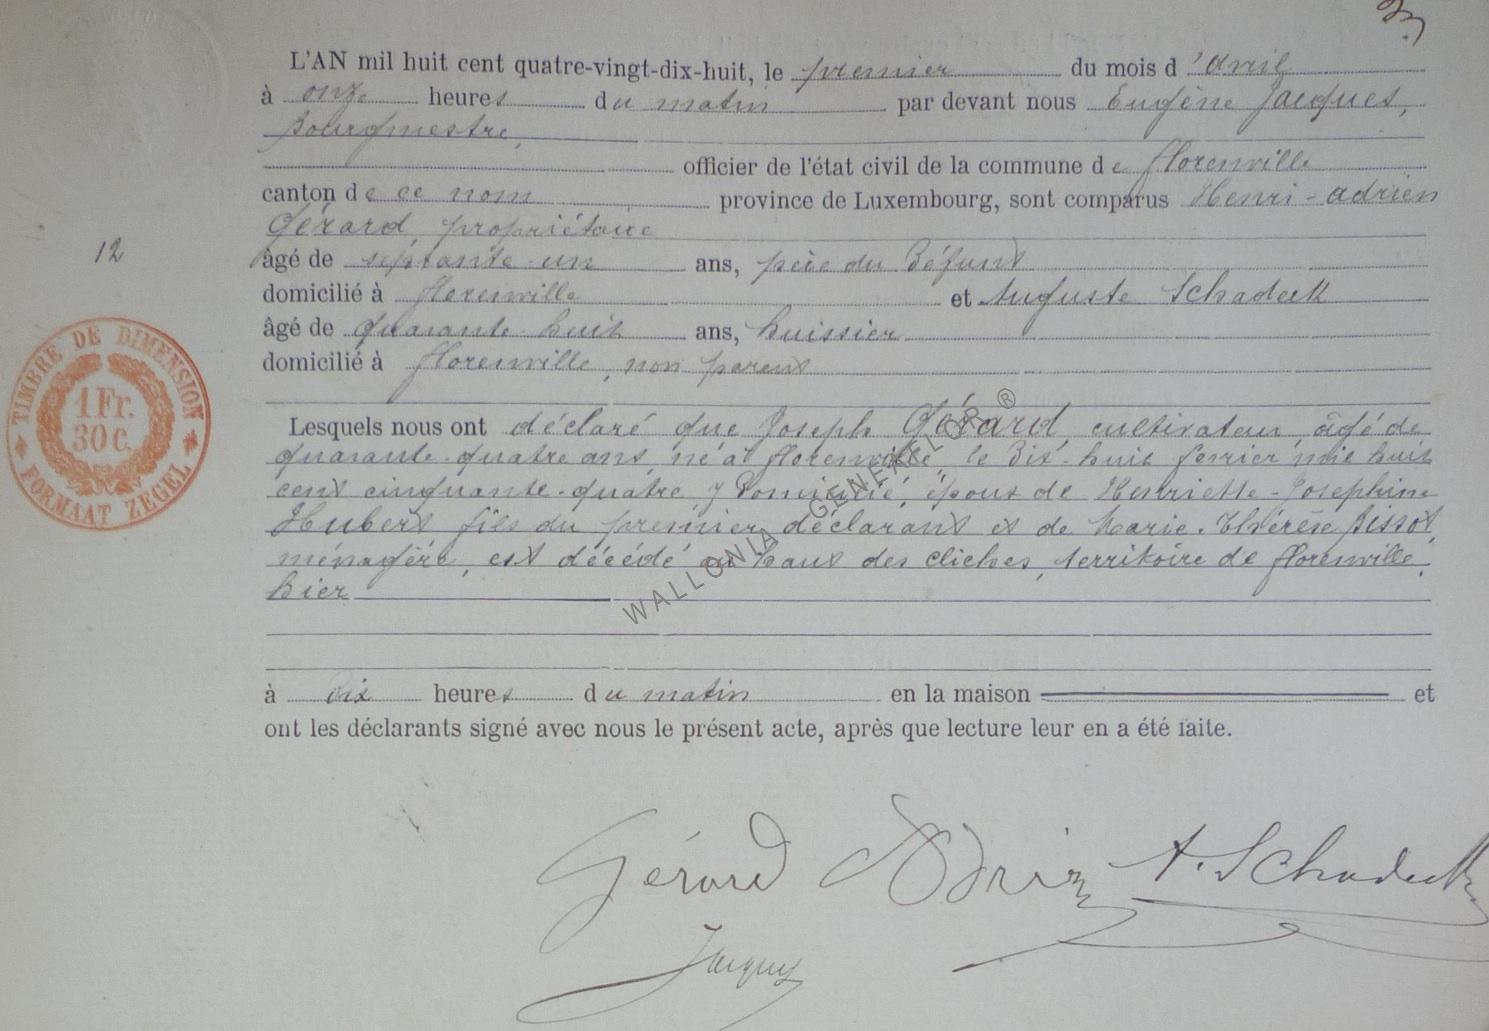 L'AN mil huit cent quatre-vingt-dix-huit, le premier du mois d'avril
à onze heures du matin par devant nous Eugène Jacques,
Bourgmestre,
officier de l'état civil de la commune de florenville
canton de ce nom province de Luxembourg, sont comparus Henri-adrien
Gérard, propriétaire
âgé de septante-un ans, père du Défunt
12
domicilié à florenville et Auguste Schadeck
âgé de quarante-huit ans, huissier
domicilié à florenville, non parent
TIMBRE DE DIMENSION
1 Fr.
30 C.
FORMAAT ZEGEL
Lesquels nous ont déclaré que Joseph Gérard, cultivateur, âgé de
quarante-quatre ans, né à florenville, le Dix-huit fevrier mil huit
cent cinquante-quatre y Domicilié, époux de Henriette-Josephine
Hubert fils du premier déclarant et de Marie-Thérèse Bissot,
ménagère, est décédé au haut des cliches, territoire de florenville,
hier
à Dix heures du matin en la maison et
ont les déclarants signé avec nous le présent acte, après que lecture leur en a été faite.
Gérard Adrien A. Schadeck
Jacques
WALLONIA GENEALOR ®